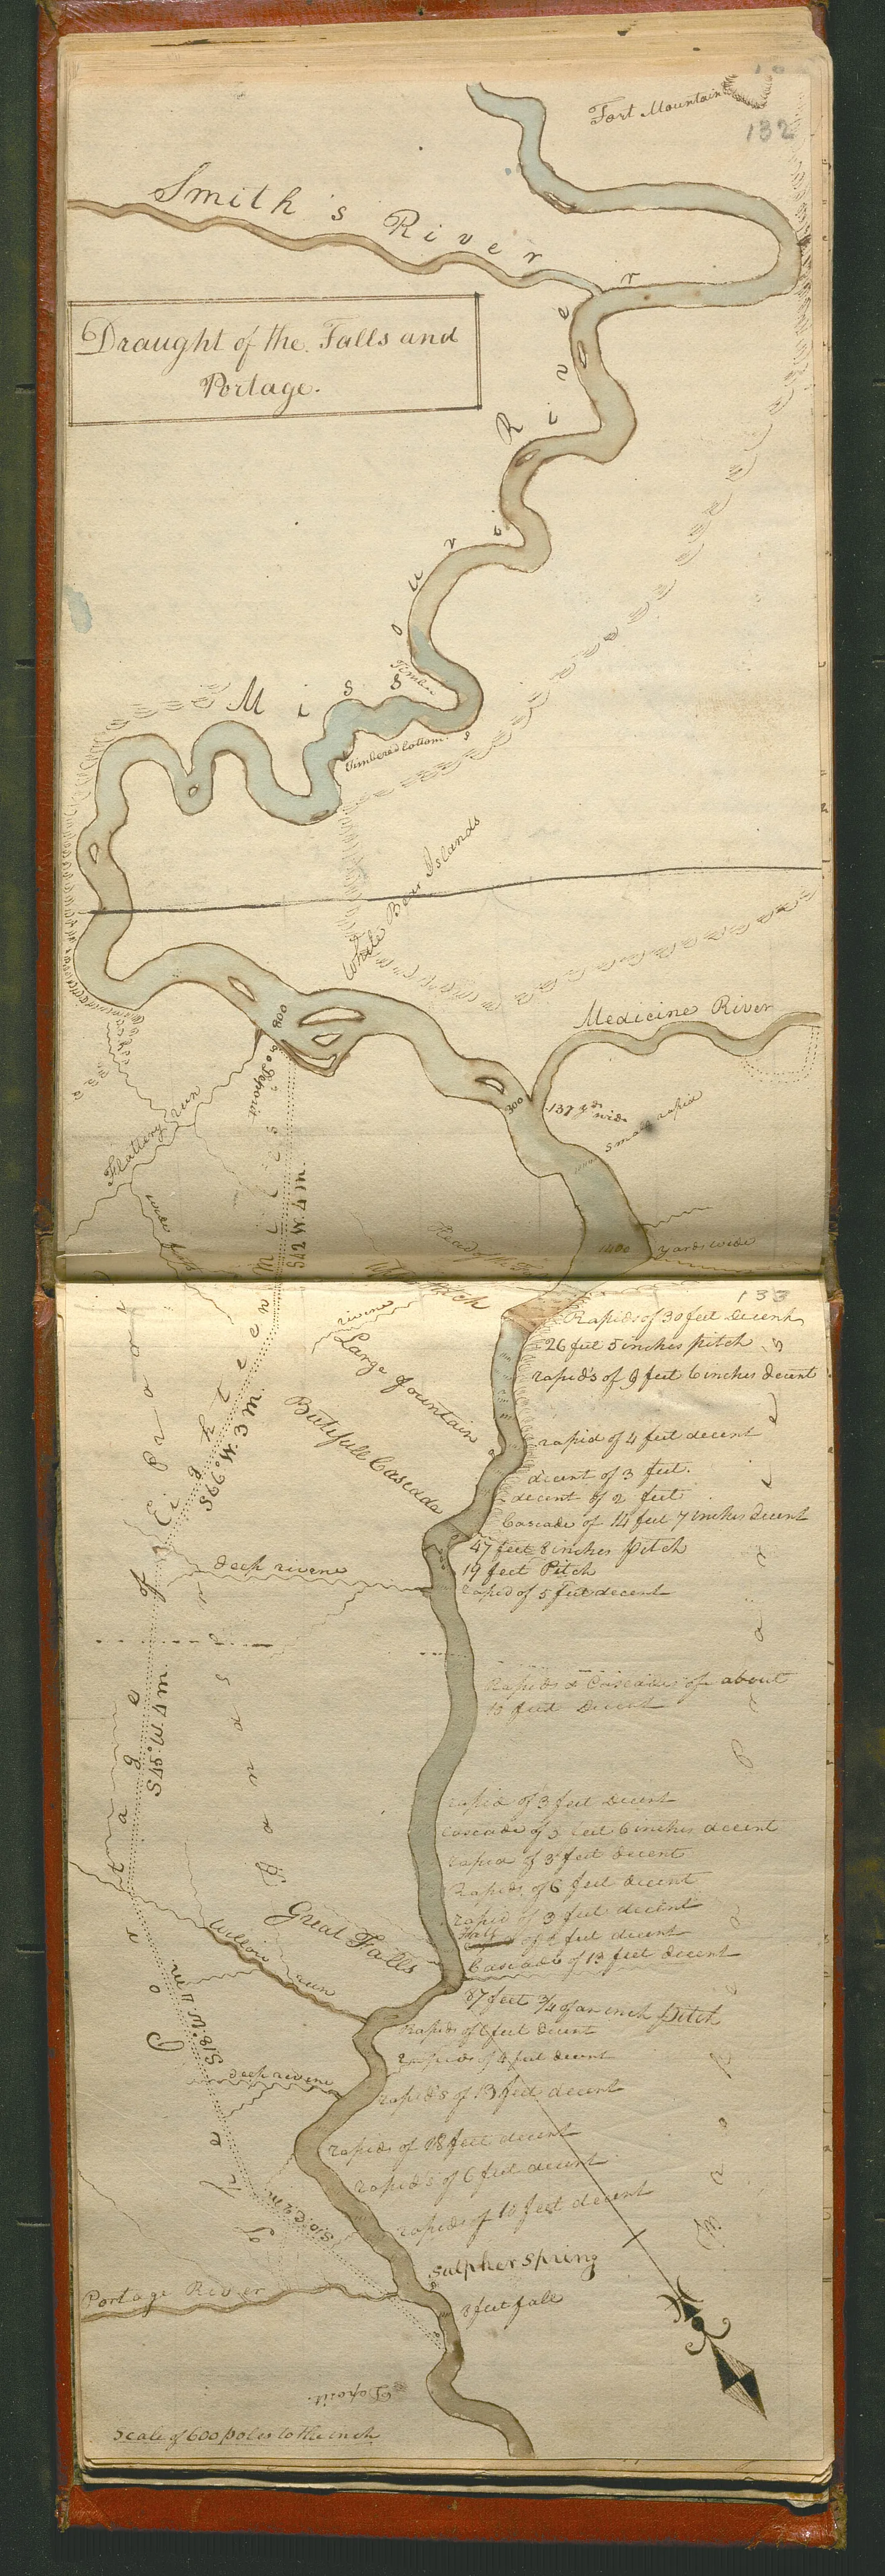 Fort Mountain
132
Smith's River
Draught of the Falls and
Portage.
Missouri River
Timber
Timbered bottoms
White Bear Islands
Medicine River
800
Deposit
300
137 yds wide
small rapid
Flattery run
S 42 W. 4 m.
1400 yards wide
133
rivine
Large fountain
Butifull Cascade
Rapids of 30 feet decent
26 feet 5 inches pitch
rapid's of 9 feet 6 inches decent
rapid of 4 feet decent
decent of 3 feet.
decent of 2 feet
Cascade of 14 feet 7 inches decent
47 feet 8 inches pitch
19 feet Pitch
rapid of 5 feet decent
S 66° W. 3 m.
deep rivene
Rapids & Cascades of about
13 feet Decent
S 45° W. 4 m.
The Portage of Eighteen Miles
rapid of 3 feet decent
Cascade of 3 feet 6 inches decent
rapid of 3 feet decent
Rapids of 6 feet decent
rapid of 3 feet decent
Cascade of 13 feet decent
Great Falls
Willow run
87 feet 3/4 of an inch pitch
Rapids of 6 feet decent
rapids of 4 feet decent
S 18° W. 4 m.
deep rivene
rapid's of 13 feet decent
rapids of 18 feet decent
rapid's of 6 feet decent
rapids of 10 feet decent
Sulpher Spring
Portage River
3 feet fall
Deposit.
Scale of 600 poles to the inch